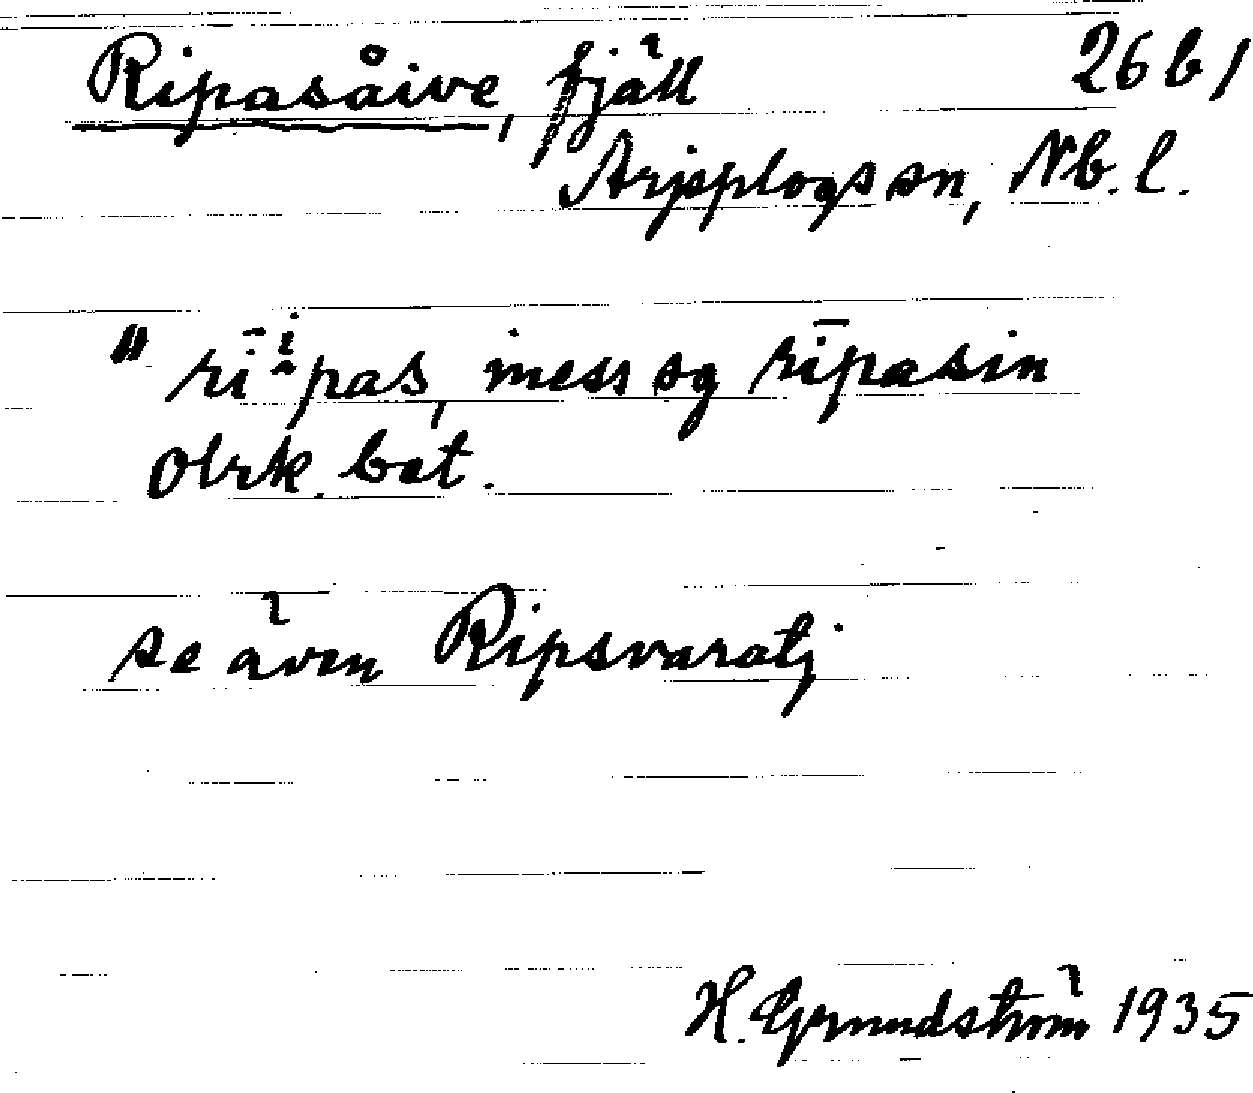 Ripasåive, fjäll 26 b 1
Arjeplogs sn, Nb. l.
" rīi̭pas, iness sg rīpasin
Obek. bet.
se även Ripsvaratj
H. Grundström 1935